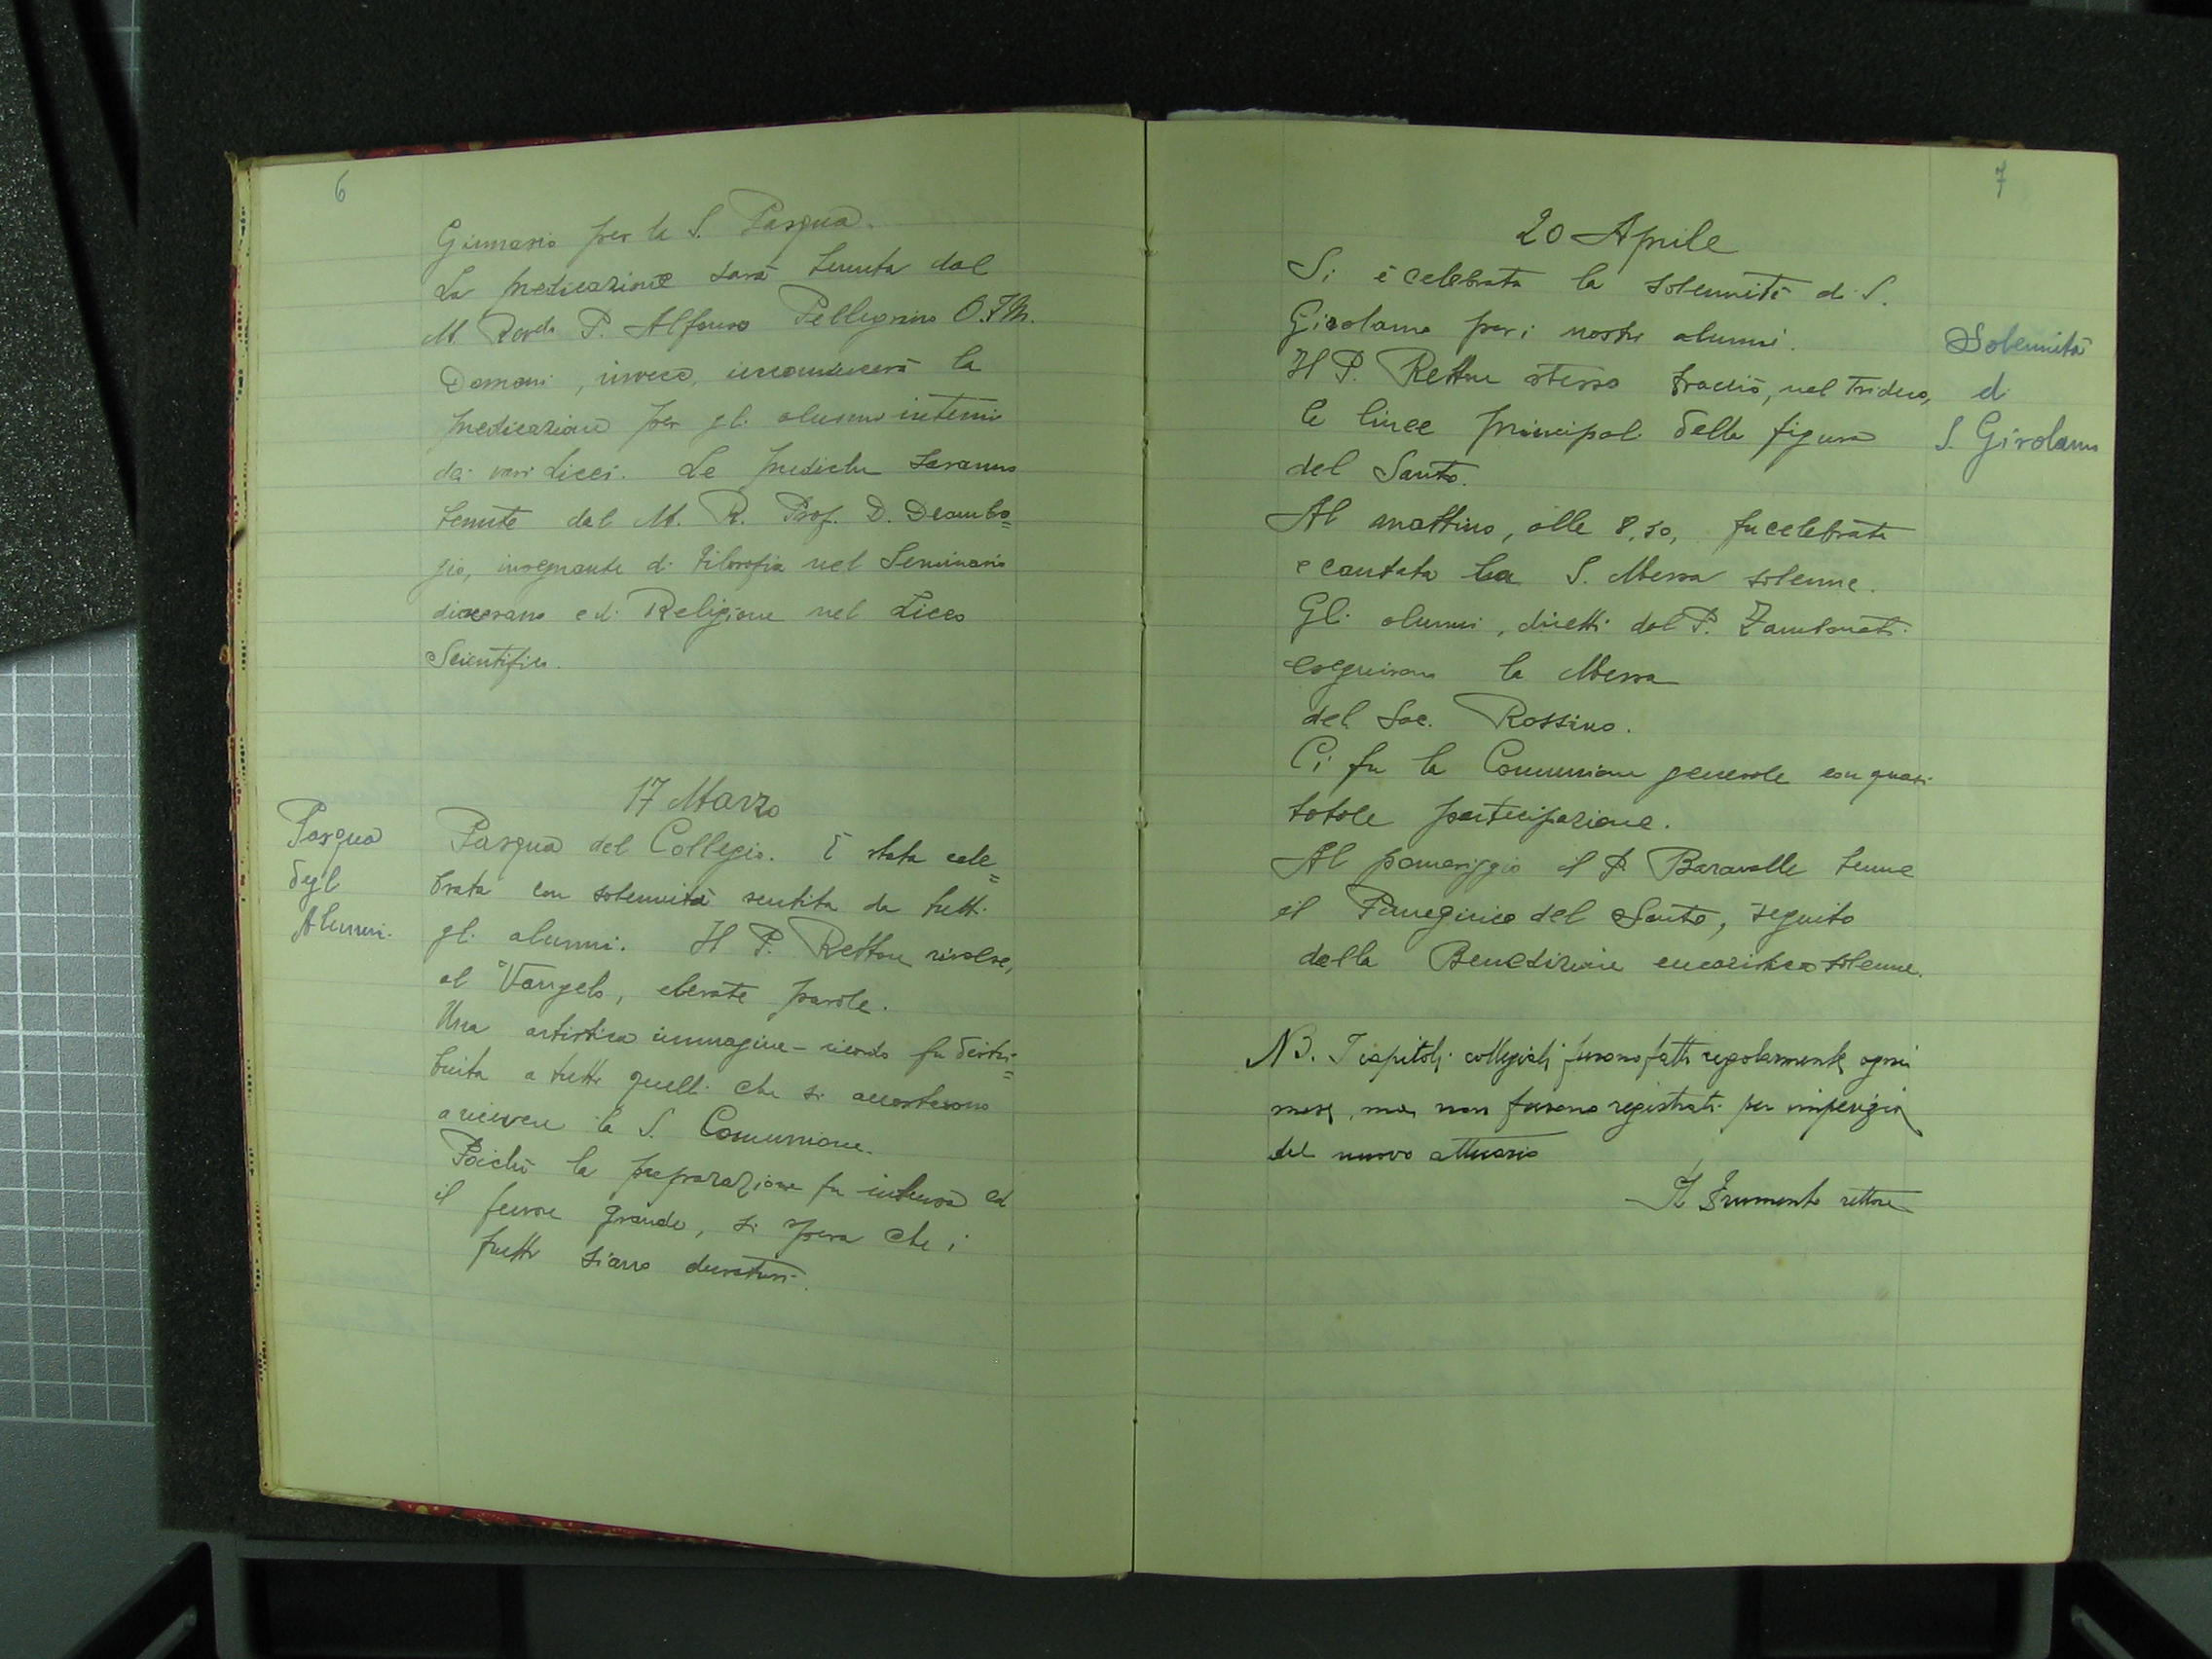 6
Ginnasio per la S. Pasqua.
La predicazione sarà tenuta dal
M. Rev.do P. Alfonso Pellegrino O.F.M.
Domani, invece, incomincerà la
predicazione per gli alunni interni
dei vari Licei. Le prediche saranno
tenute dal M. R. Prof. D. Deambro=
gio, insegnante di Filosofia nel Seminario
diocesano e di Religione nel Liceo
Scientifico.
17 Marzo
Pasqua
degli
Alunni.
Pasqua del Collegio. È stata cele=
brata con solennità sentita da tutti
gli alunni. Il P. Rettore rivolse,
al Vangelo, elevate parole.
Una artistica immagine-ricordo fu distri=
buita a tutti quelli che si accostarono
a ricevere la S. Comunione.
Poichè la preparazione fu intensa ed
il fervore grande, si spera che i
frutti siano duraturi.
7
20 Aprile
Si è celebrata la solennità di S.
Girolamo per i nostri alunni.
Il P. Rettore stesso tracciò, nel Triduo,
le linee principali della figura
del Santo.
Solennità
di
S. Girolamo
Al mattino, alle 8,30, fu celebrata
e cantata la S. Messa solenne.
Gli alunni, diretti dal P. Zambonati
eseguirono la Messa
del Sac. Rossino.
Ci fu la Comunione generale con quasi
totale partecipazione.
Al pomeriggio il P. Baravalle tenne
il Panegirico del Santo, seguito
dalla Benedizione eucaristica solenne.
NB. I capitoli collegiali furono fatti regolarmente ogni
mese, ma non furono registrati per imperizia
del nuovo attuario
Frumento rettore